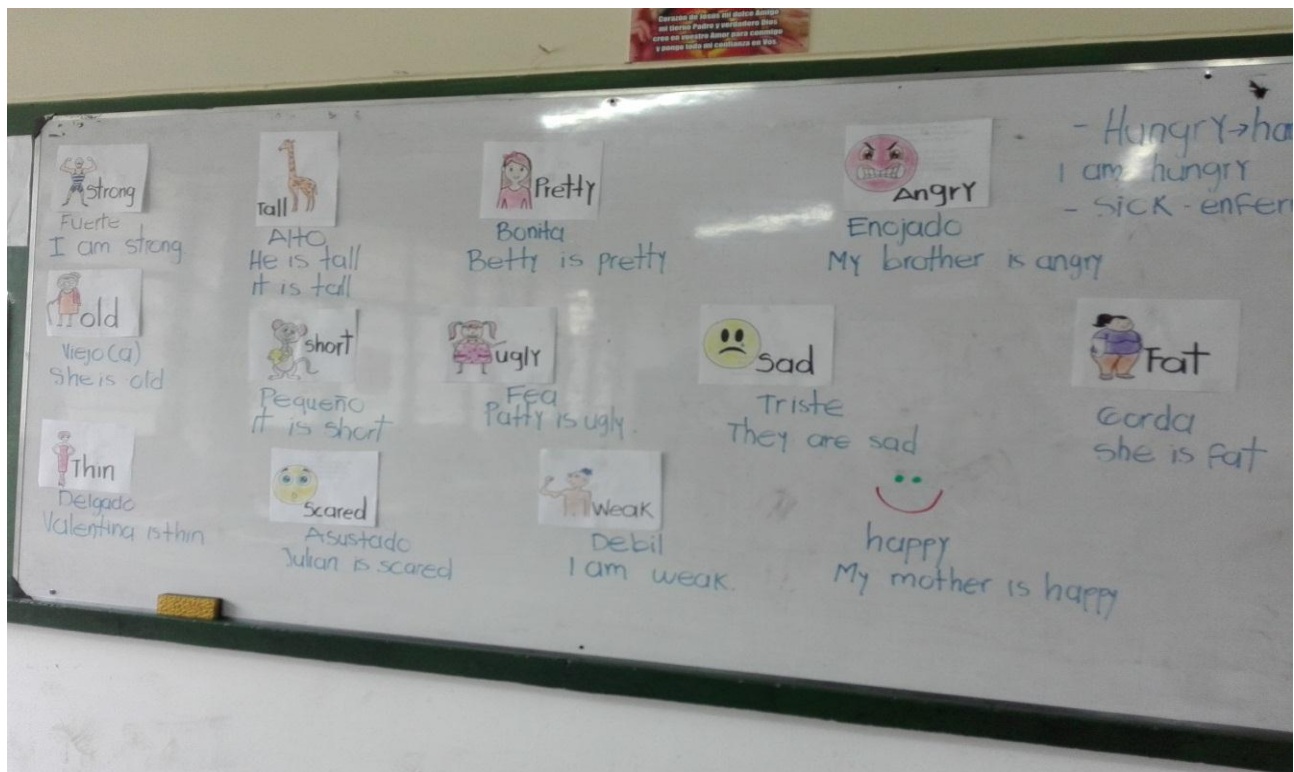 Corazón de Jesús mi dulce Amigo
mi tierno Padre y verdadero Dios
creo en vuestro Amor para conmigo
y pongo toda mi confianza en Vos.
strong
Fuerte
I am strong
Tall
Alto
He is tall
it is tall
Pretty
Bonita
Betty is pretty
Angry
Enojado
My brother is angry
- Hungry→ha
I am hungry
- Sick - enfer
old
Viejo(a)
She is old
short
Pequeño
it is short
ugly
Fea
Patty is ugly.
Sad
Triste
They are sad
Fat
Gorda
She is fat
Thin
Delgado
Valentina is thin
Scared
Asustado
Julian is scared
Weak
Debil
I am weak.
happy
My mother is happy